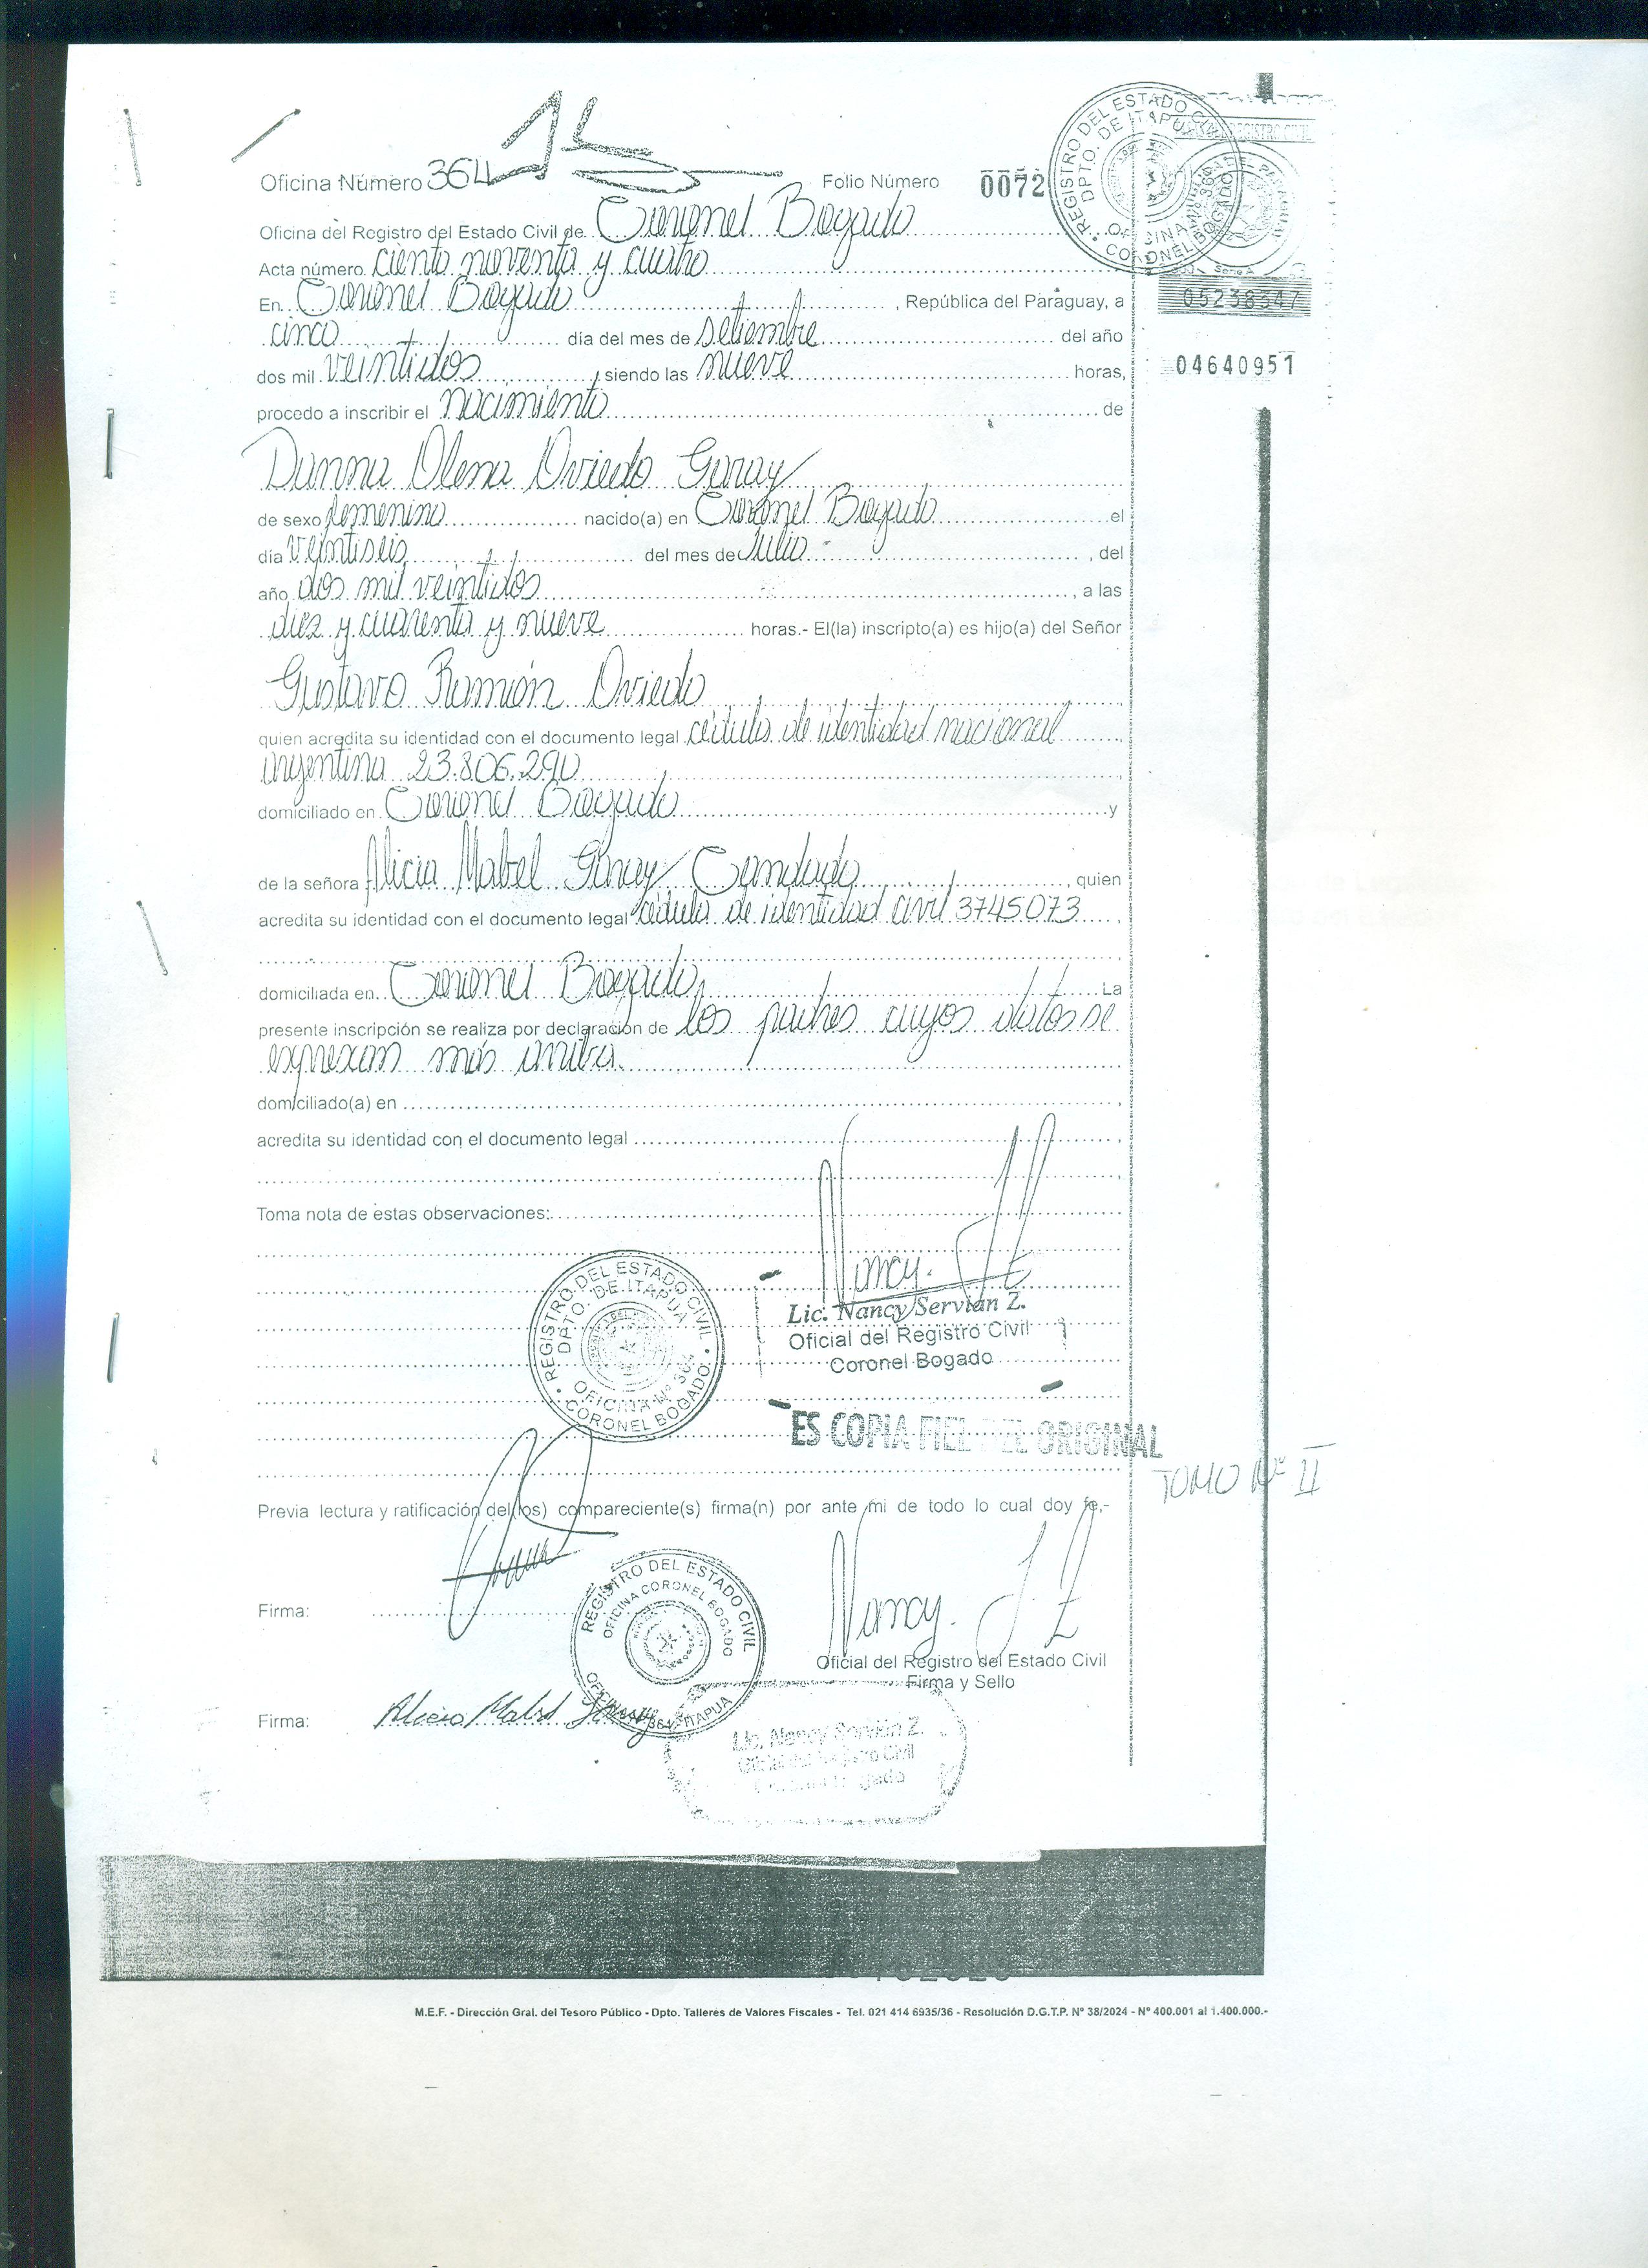 Oficina Número 364 Folio Número 0072
Oficina del Registro del Estado Civil de Coronel Bogado
Acta número ciento noventa y cuatro
En Coronel Bogado, República del Paraguay, a
cinco día del mes de setiembre del año
dos mil veintidos, siendo las nueve horas,
procedo a inscribir el nacimiento de
Danna Olena Oviedo Garay
de sexo femenino nacido(a) en Coronel Bogado el
día veintiseis del mes de Julio, del
año dos mil veintidos, a las
diez y cuarenta y nueve horas.- El(la) inscripto(a) es hijo(a) del Señor
Gustavo Ramón Oviedo
quien acredita su identidad con el documento legal cédula de identidad nacional
argentina 23.806.290
domiciliado en Coronel Bogado y
de la señora Alicia Mabel Garay Candado, quien
acredita su identidad con el documento legal cédula de identidad civil 3745073,
domiciliada en Coronel Bogado. La
presente inscripción se realiza por declaración de los padres cuyos datos se
expresan más arriba.
domiciliado(a) en
acredita su identidad con el documento legal
Toma nota de estas observaciones:
REGISTRO DEL ESTADO CIVIL
DPTO. DE ITAPUA
OFICINA Nº 364
CORONEL BOGADO
05238347
04640951
Nancy.
Lic. Nancy Servián Z.
Oficial del Registro Civil
Coronel Bogado
REGISTRO DEL ESTADO CIVIL
DPTO. DE ITAPUA
OFICINA Nº 364
CORONEL BOGADO
ES COPIA FIEL DEL ORIGINAL
TOMO Nº II
Previa lectura y ratificación del(los) compareciente(s) firma(n) por ante mi de todo lo cual doy fe,-
Firma:
Nancy.
REGISTRO DEL ESTADO CIVIL
OFICINA CORONEL BOGADO
ITAPUA
Oficial del Registro del Estado Civil
Firma y Sello
Firma: Alicia Mabel Garay
Lic. Nancy Servián Z.
Oficial del Registro Civil
M.E.F. - Dirección Gral. del Tesoro Público - Dpto. Talleres de Valores Fiscales - Tel. 021 414 6935/36 - Resolución D.G.T.P. Nº 38/2024 - Nº 400.001 al 1.400.000.-